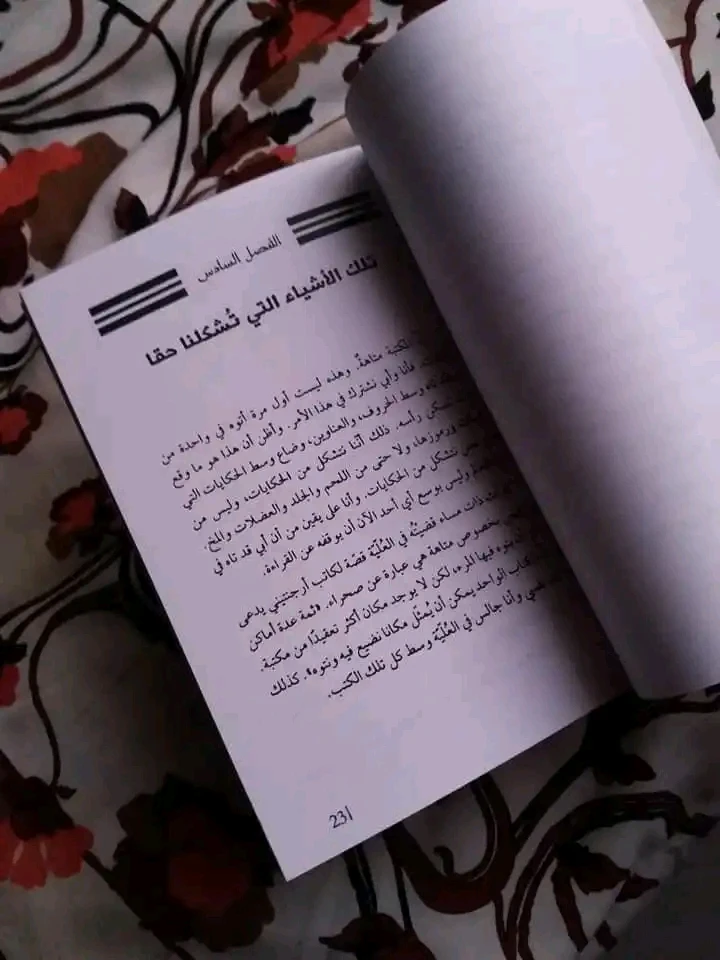 الفصل السادس
تلك الأشياء التي تُشكلنا حقا
لمكتبة متاهةٌ. وهذه ليست أول مرة أتوه في واحدة من
فأنا وأبي نشترك في هذا الأمر. وأظن أن هذا هو ما وقع
تاه وسط الحروف، والعناوين، وضاع وسط الحكايات التي
تسكن رأسه. ذلك أنّنا نتشكل من الحكايات، وليس من
ورموزها، ولا حتى من اللحم والجلد والعضلات والمخ.
نتشكل من الحكايات. وأنا على يقين من أن أبي قد تاه في
وليس بوسع أي أحد الآن أن يوقفه عن القراءة.
ذات مساء قضيتُه في العُلّيّة قصّة لكاتب أرجنتيني يدعى
بخصوص متاهة هي عبارة عن صحراء. «ثمة عدة أماكن
يتوه فيها المرء، لكن لا يوجد مكان أكثر تعقيدًا من مكتبة.
الواحد يمكن أن يُمثّل مكانا نضيع فيه ونتوه». كذلك
وأنا جالس في العُلّيّة وسط كل تلك الكتب.
23